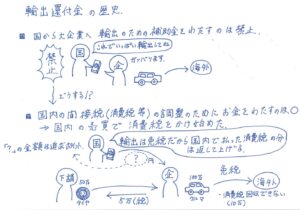 輸出還付金の歴史
国から大企業へ輸出のための補助金をわたすのは禁止
国
企
ガンバります
海外
禁止
どうする!?
国内の間接税(消費税等)の調整のためにお金をわたすのは○
→国内の売買で消費税をかけ始めた
国
輸出は免税だから国内で払った消費税の分は返して上げる
下請
50万
タイヤ
5万(税)
?
企
100万
クルマ
免税
海外
消費税回収できない